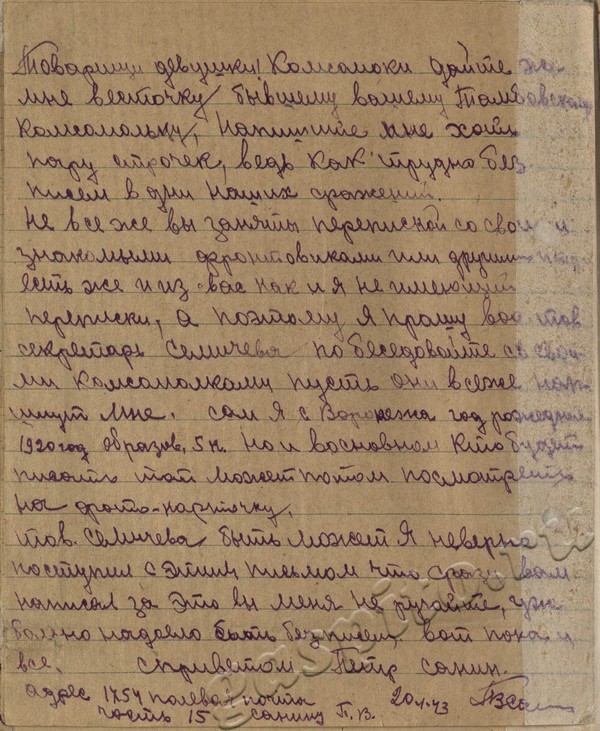 Товарищи девушки! Комсамоки дайте же
мне весточку бывшему вашему Тамбовскому
комсомольцу, Напишите мне хоть
пару строчек, ведь как трудно без
писем в дни наших сражений.
Не все же вы заняты перепиской со своими
знакомыми фронтовиками или другими
есть же и из вас как и я не имеющий
переписки, а поэтому я прошу вас тов
секретарь Семичева побеседовайте со свои
ми комсомолками пусть они все же нап
ишут мне. сам я с Воронежа год рождения
1920 год образов. 5 к. Но и восновном кто будет
писать тот может потом посмотреть
на фото-карточку.
тов. Семичева быть может я неверно
поступил с этим письмом что сразу вам
написал за это вы меня не ругайте, уж
больно надоело быть безписем, вот пока и
все. сприветом Петр санин.
адрес 1754 полевая почта 20.1.43
часть 15 санину П.В.